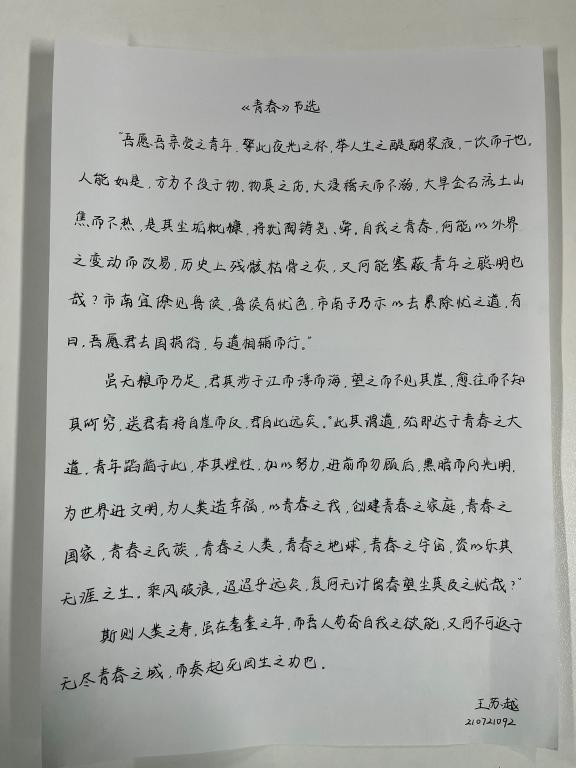 《青春》节选
"吾愿吾亲爱之青年，擎此夜光之杯，举人生之醍醐浆液，一饮而干也。
人能如是，方为不役于物，物莫之伤。大浸稽天而不溺，大旱金石流土山
焦而不热，是其尘垢粃糠，将犹陶铸尧、舜。自我之青春，何能以外界
之变动而改易，历史上残骸枯骨之灰，又何能塞蔽青年之聪明也
哉？市南宜僚见鲁侯，鲁侯有忧色，市南子乃示以去累除忧之道，有
曰，吾愿君去国捐俗，与道相辅而行。"
虽无粮而乃足，君其涉于江而浮于海，望之而不见其崖，愈往而不知
其所穷，送君者将自崖而反，君自此远矣。"此其谓道，殆即达于青春之大
道，青年蹈循于此，本其理性，加以努力，进前而勿顾后，黑暗而向光明，
为世界进文明，为人类造幸福，以青春之我，创建青春之家庭，青春之
国家，青春之民族，青春之人类，青春之地球，青春之宇宙，资以乐其
无涯之生。乘风破浪，迢迢乎远矣，复何无计留春望尘莫及之忧哉？"
斯则人类之寿，虽在耄耋之年，而吾人苟奋自我之欲能，又何不可返于
无尽青春之域，而奏起死回生之功也。
王苏越
210721092